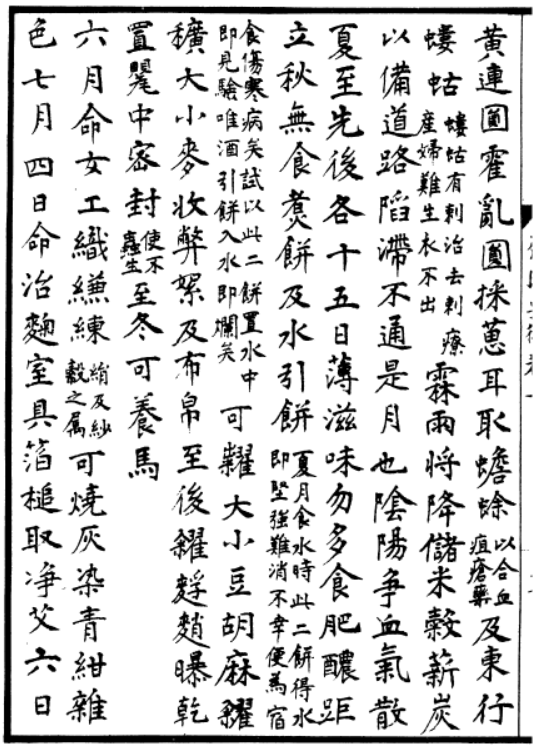 黃連圓霍亂圓採葱耳取蟾蜍以合血疽瘡藥及東行
螻蛄螻蛄有刺治去刺療產婦難生衣不出霖雨将降儲米穀薪炭
以備道路陷滯不通是月也陰陽爭血氣散
夏至先後各十五日薄滋味勿多食肥醲距
立秋無食煑餅及水引餅夏月食水時此二餅得水即堅強難消不幸便為宿
食傷寒病矣試以此二餅置水中即見驗唯酒引餅入水即爛矣可糶大小豆胡麻糴
穬大小麥收弊絮及布帛至後糴䴸䴬曝乾
置甖中密封使不蟲生至冬可養馬
六月命女工織縑練絹及紗縠之屬可燒灰染青紺雜
色七月四日命治麴室具箔槌取净艾六日